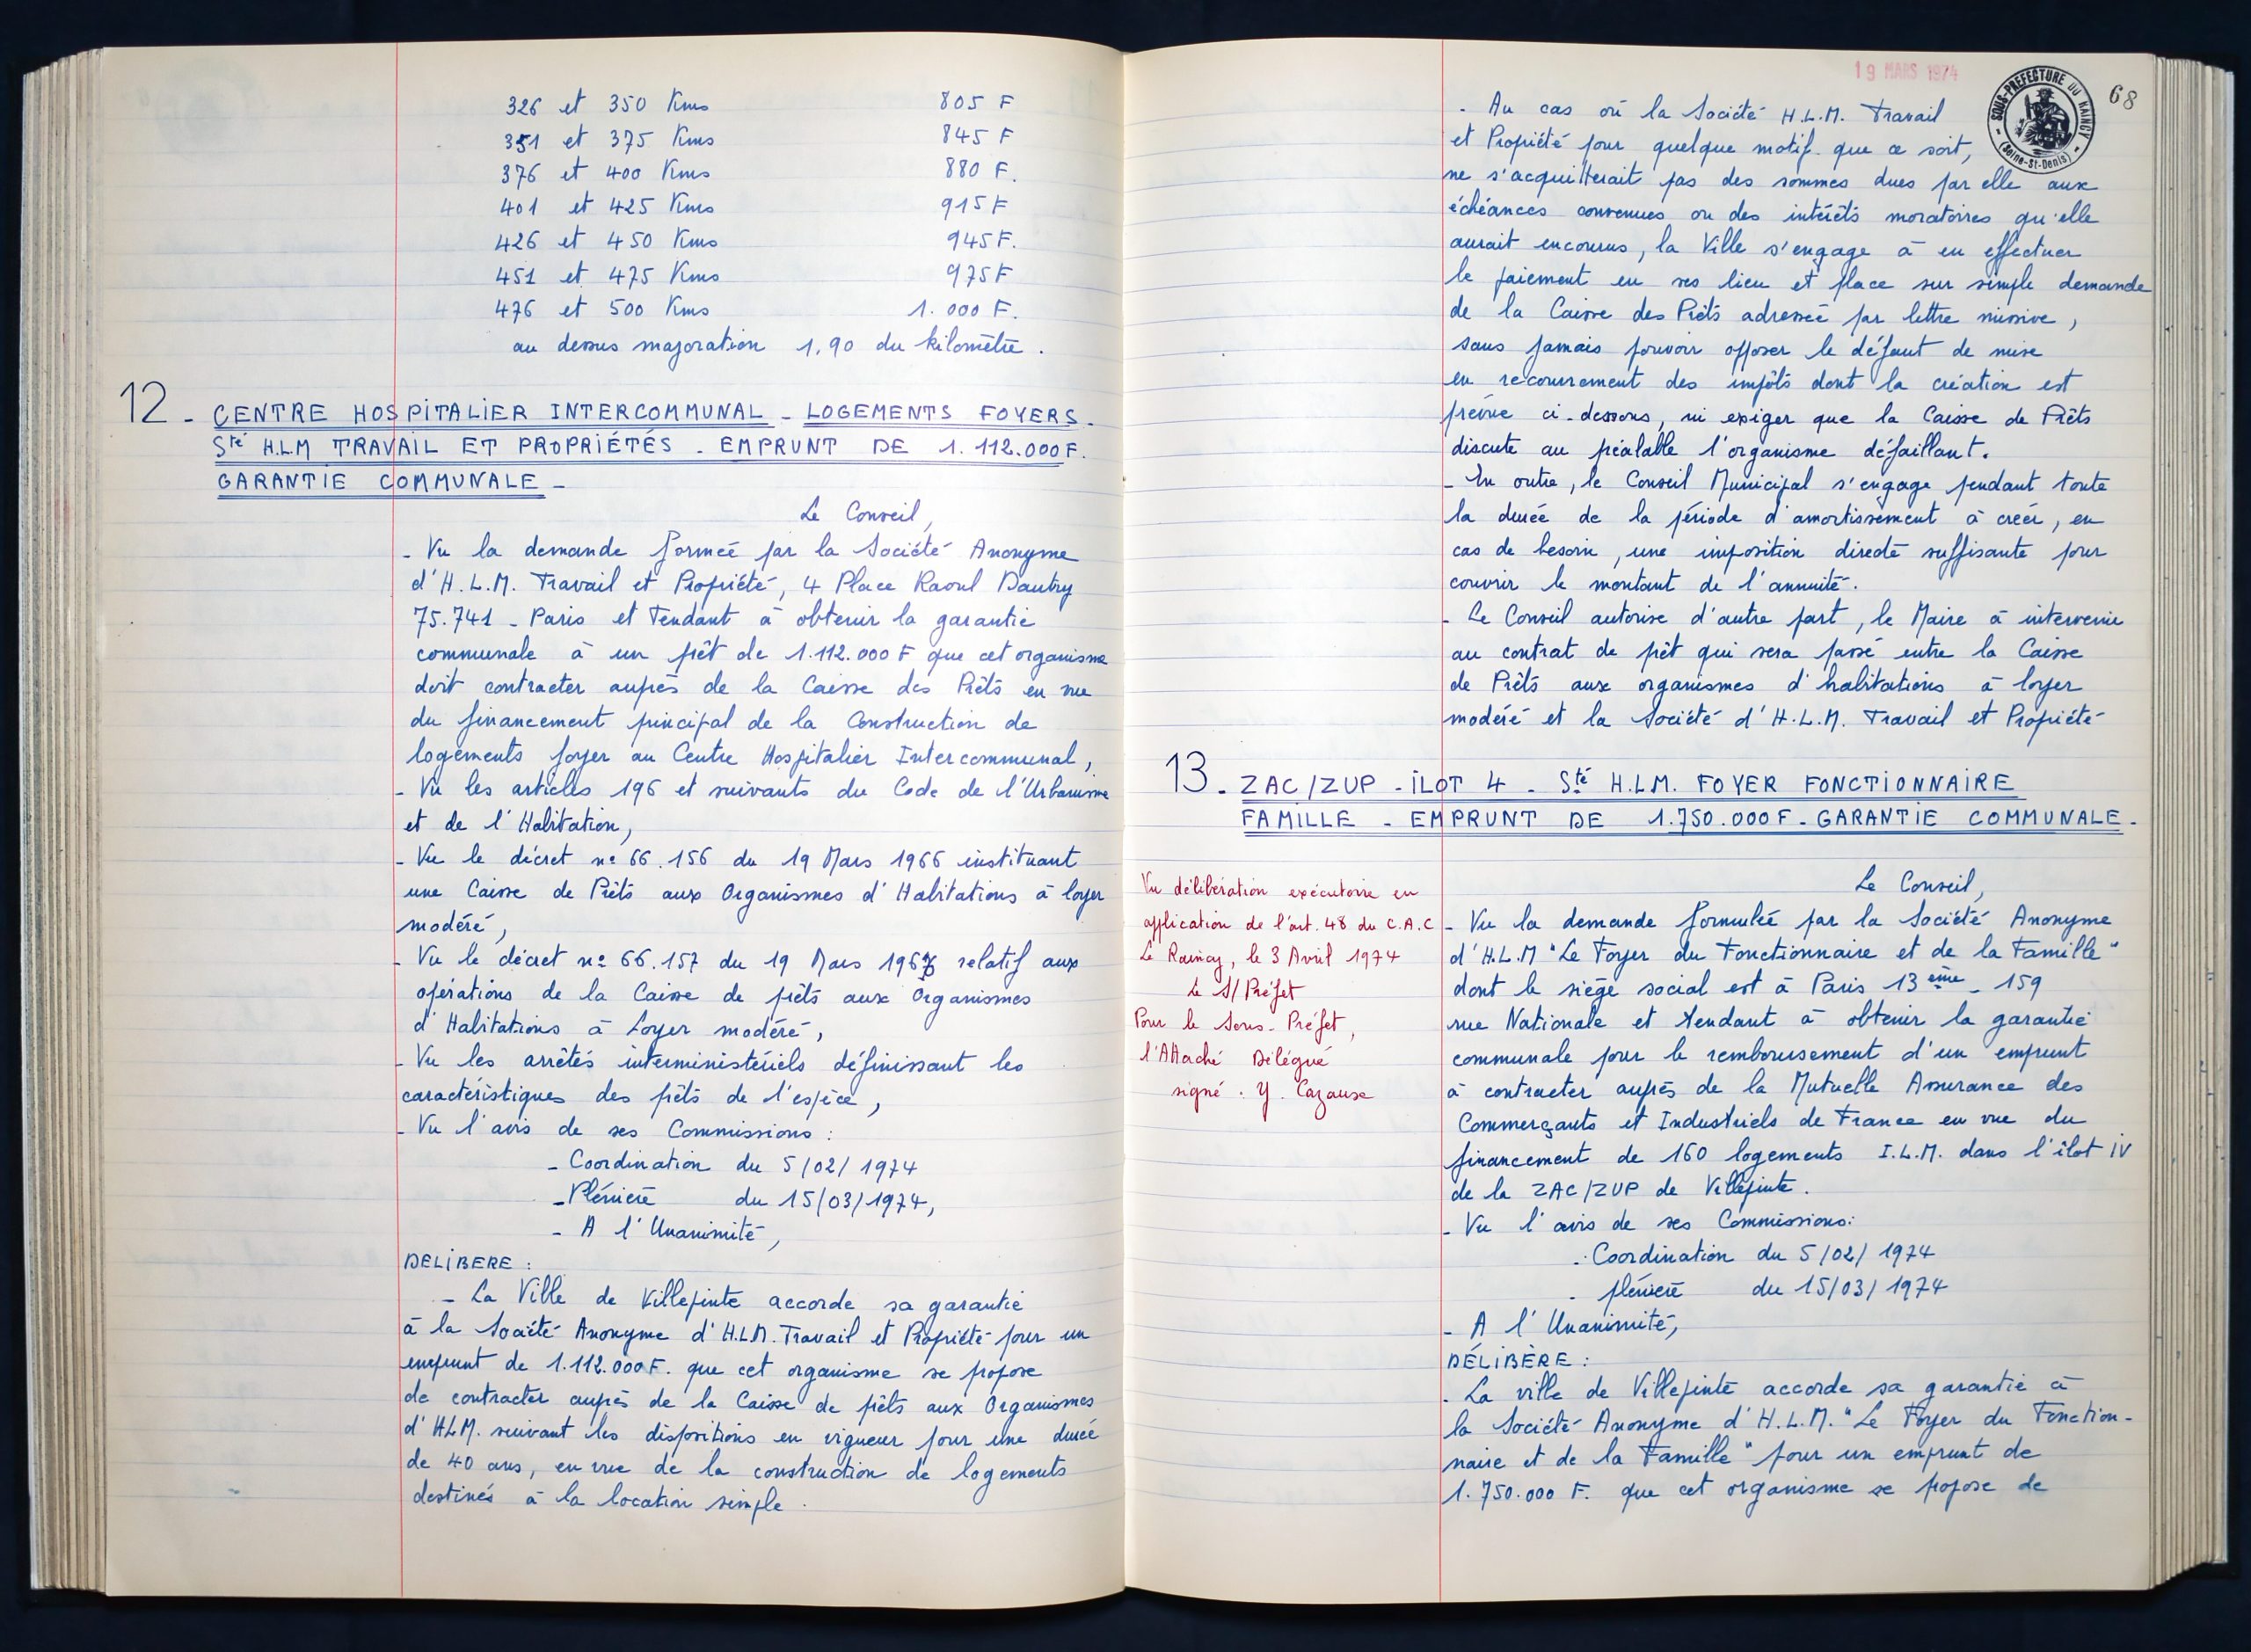 326 et 350 Kms 805 F
351 et 375 Kms 845 F
376 et 400 Kms 880 F.
401 et 425 Kms 915 F
426 et 450 Kms 945 F.
451 et 475 Kms 975 F
476 et 500 Kms 1.000 F.
au dessus majoration 1,90 du kilomètre.
12 - CENTRE HOSPITALIER INTERCOMMUNAL - LOGEMENTS FOYERS -
Sté H.L.M TRAVAIL ET PROPRIÉTÉS - EMPRUNT DE 1.112.000 F.
GARANTIE COMMUNALE -
Le Conseil,
- Vu la demande formée par la Société Anonyme
d'H.L.M. Travail et Propriété, 4 Place Raoul Dautry
75.741 - Paris et Tendant à obtenir la garantie
communale à un prêt de 1.112.000 F que cet organisme
doit contracter auprès de la Caisse des Prêts en vue
du financement principal de la Construction de
logements foyer au Centre Hospitalier Intercommunal,
- Vu les articles 196 et suivants du Code de l'Urbanisme
et de l'Habitation,
- Vu le décret n° 66.156 du 19 Mars 1966 instituant
une Caisse de Prêts aux Organismes d'Habitations à loyer
modéré,
- Vu le décret n° 66.157 du 19 Mars 1966 relatif aux
opérations de la Caisse de prêts aux Organismes
d'Habitations à Loyer modéré,
- Vu les arrêtés interministériels définissant les
caractéristiques des prêts de l'espèce,
- Vu l'avis de ses Commissions :
- Coordination du 5/02/1974
- Plénière du 15/03/1974,
- A l'Unanimité,
DELIBERE :
- La Ville de Villepinte accorde sa garantie
à la Société Anonyme d'H.L.M. Travail et Propriété pour un
emprunt de 1.112.000 F. que cet organisme se propose
de contracter auprès de la Caisse de prêts aux Organismes
d'HLM. suivant les dispositions en vigueur pour une durée
de 40 ans, en vue de la construction de logements
destinés à la location simple.
19 MARS 1974
SOUS-PREFECTURE DU RAINCY
(Seine-St-Denis)
68
- Au cas où la Société H.L.M. Travail
et Propriété pour quelque motif que ce soit,
ne s'acquitterait pas des sommes dues par elle aux
échéances convenues ou des intérêts moratoires qu'elle
aurait encourus, la Ville s'engage à en effectuer
le paiement en ses lieu et place sur simple demande
de la Caisse des Prêts adressée par lettre missive,
sans jamais pouvoir opposer le défaut de mise
en recouvrement des impôts dont la création est
prévue ci-dessous, ni exiger que la Caisse de Prêts
discute au préalable l'organisme défaillant.
- En outre, le Conseil Municipal s'engage pendant toute
la durée de la période d'amortissement à créer, en
cas de besoin, une imposition directe suffisante pour
couvrir le montant de l'annuité.
- Le Conseil autorise d'autre part, le Maire à intervenir
au contrat de prêt qui sera passé entre la Caisse
de Prêts aux organismes d'habitations à loyer
modéré et la Société d'H.L.M. Travail et Propriété
13 - ZAC/ZUP - ILOT 4 - Sté H.L.M. FOYER FONCTIONNAIRE
FAMILLE - EMPRUNT DE 1.750.000 F - GARANTIE COMMUNALE -
Vu délibération exécutoire en
application de l'art. 48 du C.A.C
Le Raincy, le 3 Avril 1974
Le S/Préfet
Pour le Sous-Préfet,
l'Attaché Délégué
signé . Y. Cazaux
Le Conseil,
- Vu la demande formulée par la Société Anonyme
d'H.L.M "Le Foyer du Fonctionnaire et de la Famille"
dont le siège social est à Paris 13 ème - 159
rue Nationale et tendant à obtenir la garantie
communale pour le remboursement d'un emprunt
à contracter auprès de la Mutuelle Assurance des
Commerçants et Industriels de France en vue du
financement de 160 logements I.L.M. dans l'îlot IV
de la ZAC/ZUP de Villepinte.
- Vu l'avis de ses Commissions:
- Coordination du 5/02/1974
- plénière du 15/03/1974
- A l'Unanimité,
DÉLIBÈRE :
- La ville de Villepinte accorde sa garantie à
la Société Anonyme d'H.L.M. "Le Foyer du Fonction-
naire et de la Famille" pour un emprunt de
1.750.000 F. que cet organisme se propose de